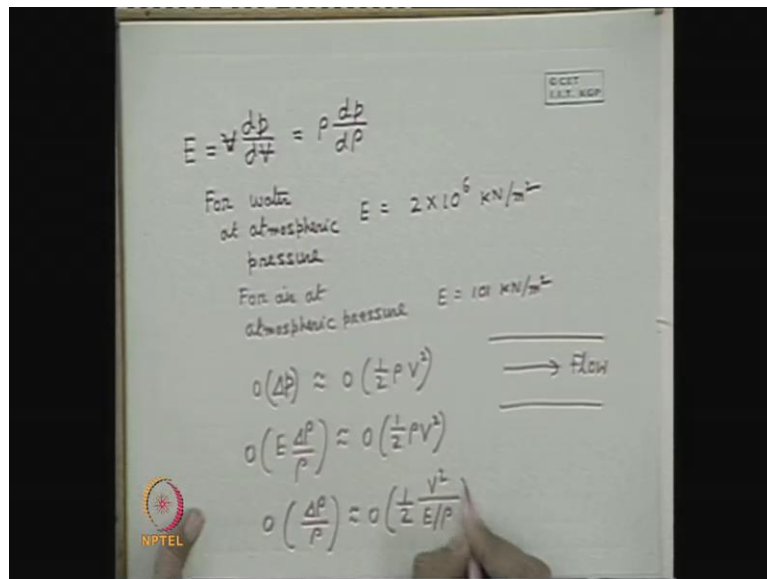 C CET
I.I.T. KGP
E = ∀ dp/d∀ = ρ dp/dρ
For water
at atmospheric E = 2 × 10⁶ kN/m²
pressure
For air at
atmospheric pressure E = 101 kN/m²
→ Flow
O(Δp) ≈ O(½ ρV²)
O(E Δρ/ρ) ≈ O(½ ρV²)
O(Δρ/ρ) ≈ O(½ V²/E/ρ)
NPTEL